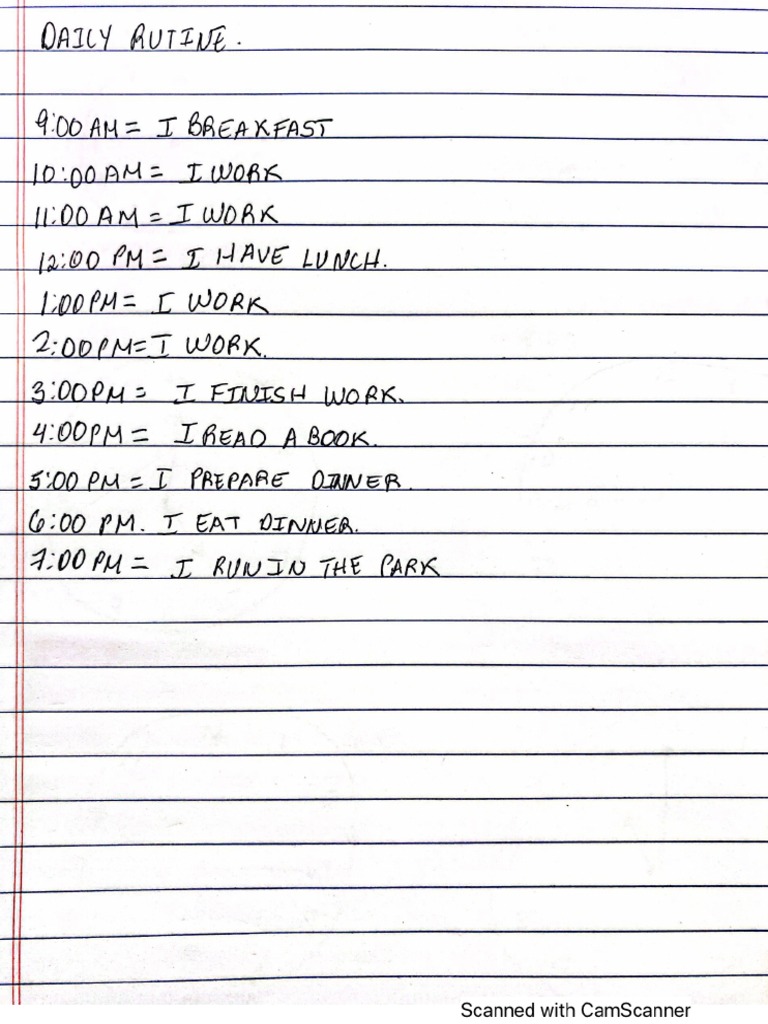 DAILY RUTINE.
9:00 AM = I BREAKFAST
10:00 AM = I WORK
11:00 AM = I WORK
12:00 PM = I HAVE LUNCH.
1:00 PM = I WORK
2:00 PM = I WORK.
3:00 PM = I FINISH WORK.
4:00 PM = I READ A BOOK.
5:00 PM = I PREPARE DINNER.
6:00 PM. I EAT DINNER.
7:00 PM = I RUN IN THE PARK
Scanned with CamScanner